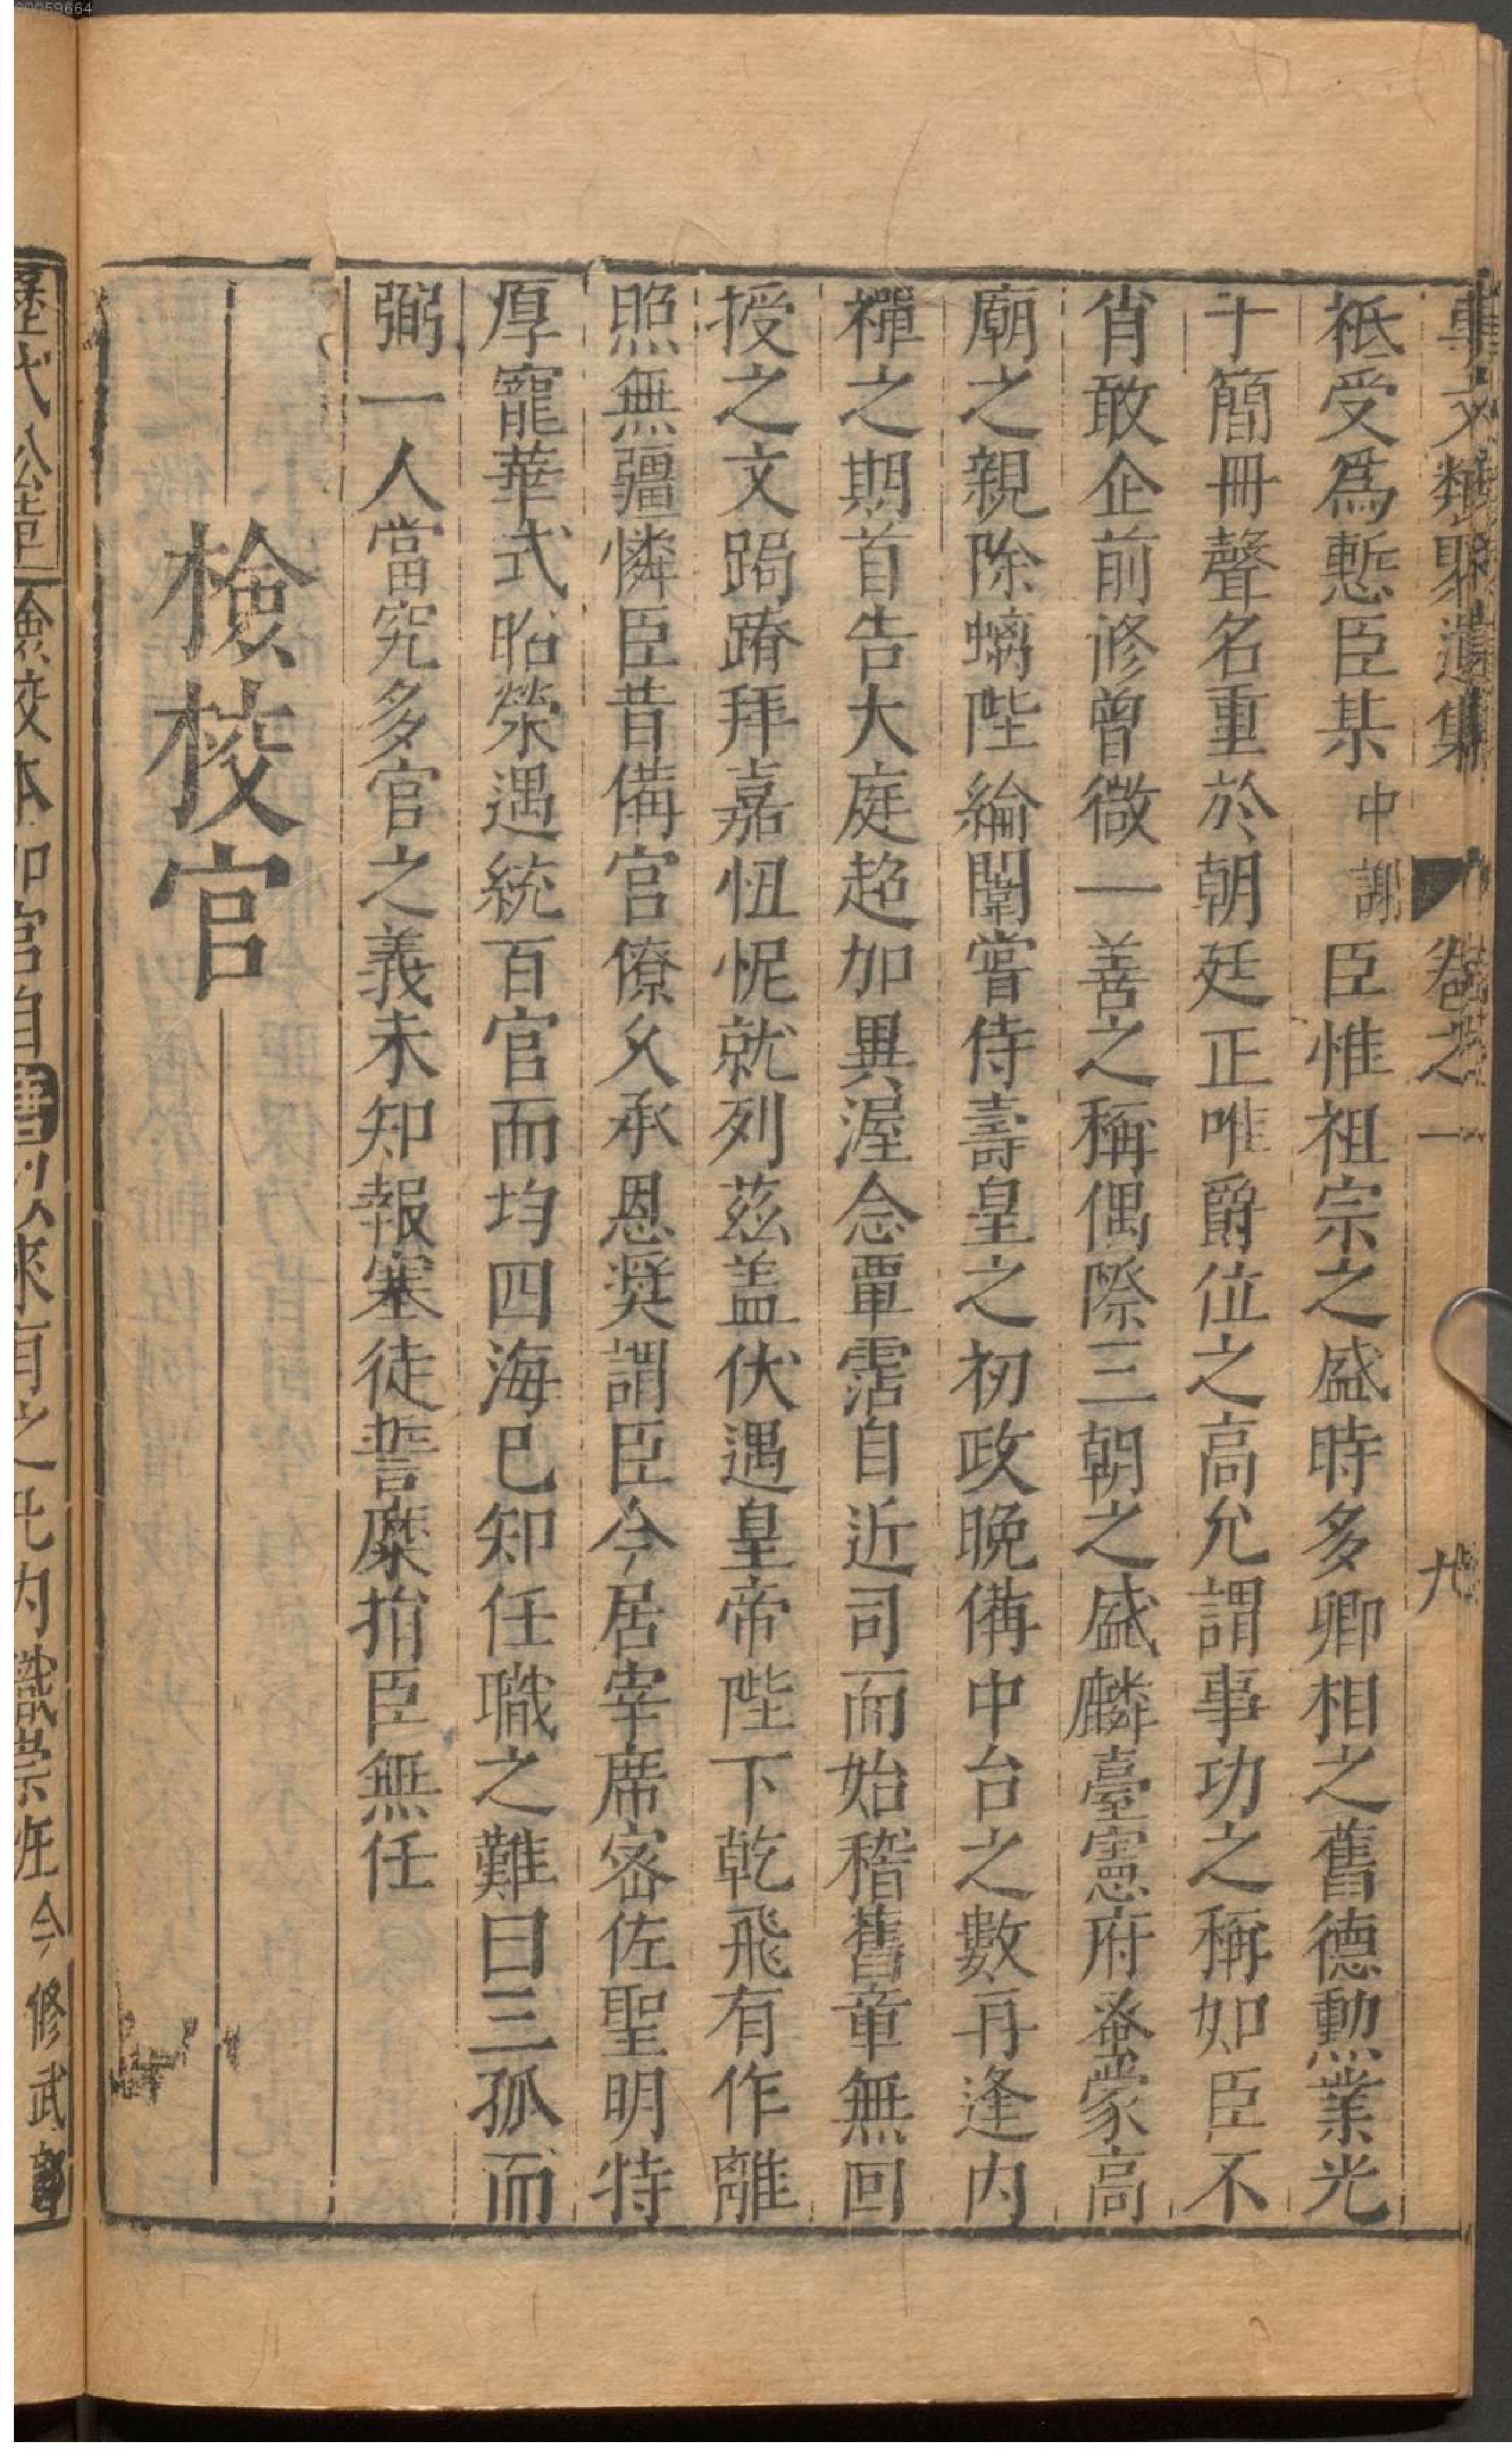 事文類聚遺集 卷之一 九
祗受爲慙臣某中謝臣惟祖宗之盛時多卿相之舊德勳業光
十簡冊聲名重於朝廷正唯爵位之高允謂事功之稱如臣不
肖敢企前修曾微一善之稱偶際三朝之盛麟臺憲府蚤蒙高
廟之親除螭陛綸闈嘗侍壽皇之初政晚備中台之數再逢内
禪之期首告大庭超加異渥念覃霑自近司而始稽舊章無回
授之文跼蹐拜嘉忸怩就列茲盖伏遇皇帝陛下乾飛有作離
照無疆憐臣昔備官僚久承恩奨謂臣今居宰席宻佐聖明特
厚寵華式昭榮遇統百官而均四海已知任職之難曰三孤而
弼一人當究多官之義未知報塞徒誓糜捐臣無任
檢校官
歷代公章 檢校本加官自唐以來有之凡内職崇班今修武
00059664